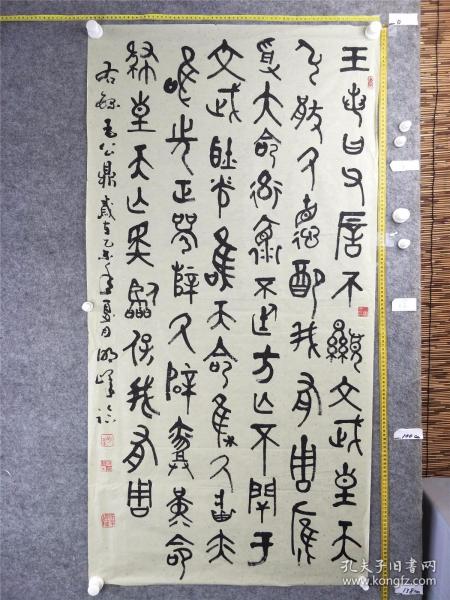 王若曰父厝不顯文武皇天
弘猒氒德配我有周膺
受大命率懷不廷方亡不閈于
文武耿光唯天集氒
唯先正辥氒辟命
肆皇天亡斁臨保我有周
右錄毛公鼎歲在乙未年夏月
孔夫子旧书网
kongfz.com